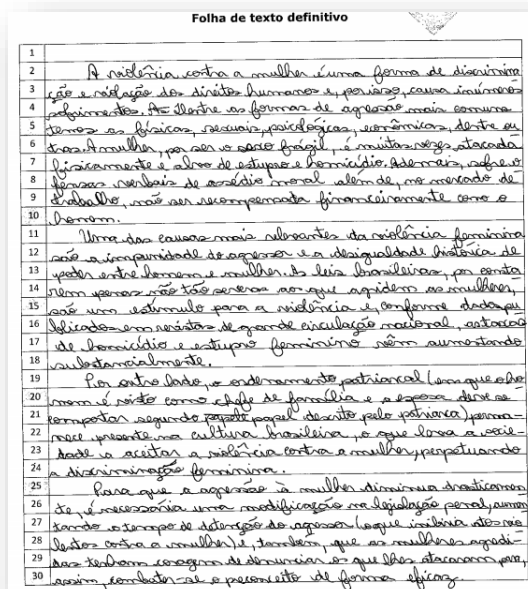 Folha de texto definitivo
1
2 A violência contra a mulher é uma forma de discrimina
3 ção e violação dos direitos humanos e, por isso, causa inúmeros
4 sofrimentos. Dentre as formas de agressão mais comuns
5 temos as físicas, sexuais, psicológicas, econômicas, dentre ou
6 tras. A mulher, por ser o sexo frágil, é muitas vezes atacada
7 fisicamente e alvo de estupro e homicídio. Ademais, sofre o
8 fensas verbais de assédio moral além de, no mercado de
9 trabalho, não ser recompensada financeiramente como o
10 homem.
11 Uma das causas mais relevantes da violência feminina
12 são a impunidade do agressor e a desigualdade histórica de
13 poder entre homem e mulher. As leis brasileiras, por conta
14 rem penas não tão severas aos que agridem as mulheres,
15 são um estímulo para a violência e, conforme dados pu
16 blicados em revistas de grande circulação nacional, as taxas
17 de homicídio e estupro feminino vêm aumentando
18 substancialmente.
19 Por outro lado, o ordenamento patriarcal (em que o ho
20 mem é visto como chefe de família e a esposa deve se
21 comportar segundo papel descrito pelo patriarca) perma-
22 nece presente na cultura brasileira, o que leva a socie-
23 dade a aceitar a violência contra a mulher, perpetuando
24 a discriminação feminina.
25 Para que a agressão à mulher diminua drasticamen
26 te, é necessária uma modificação na legislação penal, aumen
27 tando o tempo de detenção do agressor (o que inibiria atos vio
28 lentos contra a mulher) e, também, que as mulheres agredi-
29 das tenham coragem de denunciar os que lhes atacaram para,
30 assim, combater-se o preconceito de forma eficaz.